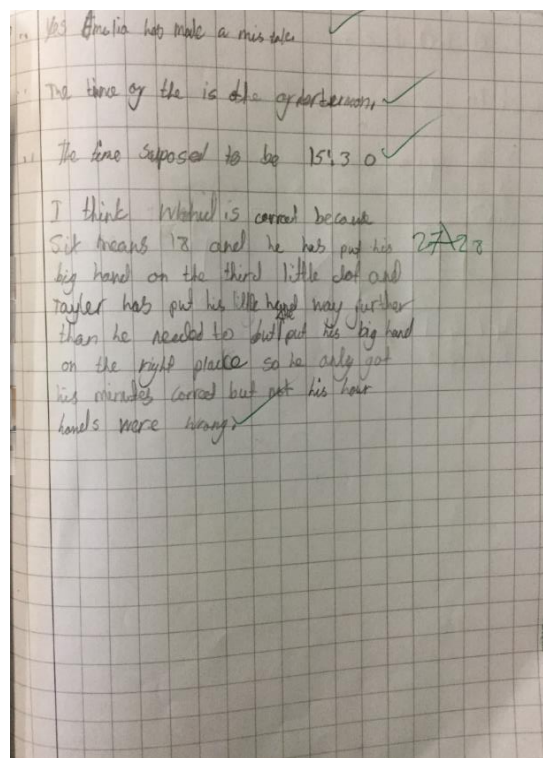 Yes Amelia has made a mistake
The time of the is the
The time suposed to be 15:30
I think is correct because
Six means 18 and he has put his
big hand on the third little dot and
Tayler has put his little hand way further
than he needed to but he put his big hand
on the right place so he only got
his minutes correct but his hour
hands were wrong.